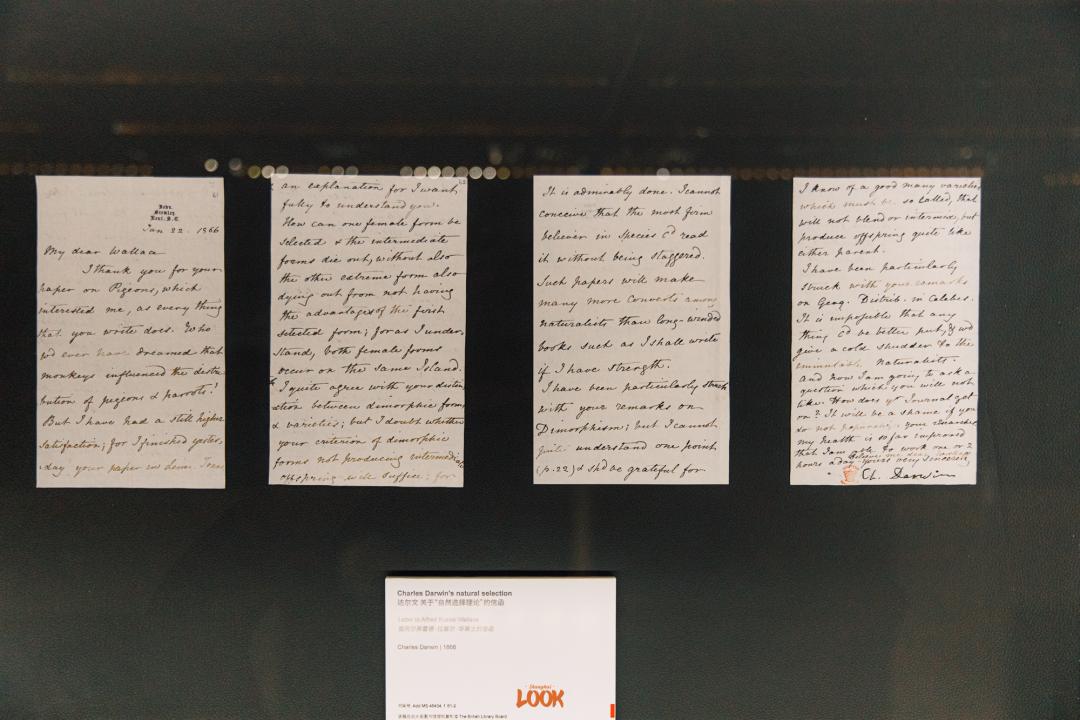 Down.
Bromley.
Kent. S.E.
Jan 22. 1866
My dear Wallace
I thank you for your
paper on Pigeons, which
interested me, as every thing
that you write does. Who
wd ever have dreamed that
monkeys influenced the distri
bution of pigeons & parrots!
But I have had a still higher
satisfaction; for I finished yester-
day your paper in Linn. Trans
an explanation for I want
fully to understand you.
How can one female form be
selected & the intermediate
forms die out, without also
the other extreme form also
dying out from not having
the advantages of the first
selected form; for as I under-
stand, both female forms
occur on the same Island.
I quite agree with your distin
ction between dimorphic forms
& varieties; but I doubt whether
your criterion of dimorphic
forms not producing intermediate
offspring will suffice; for
It is admirably done. I cannot
conceive that the most firm
believer in Species cd read
it without being staggered.
Such papers will make
many more converts among
naturalists than long-winded
books such as I shall write
if I have strength.
I have been particularly struck
with your remarks on
Dimorphism; but I cannot
quite understand one point
(p. 22) & shd be grateful for
I know of a good many varieties
which must be so called, that
will not blend or intermix, but
produce offspring quite like
either parent.
I have been particularly
struck with your remarks
on Geog. Distrib. in Celebes.
It is impossible that any
thing cd be better put, & wd
give a cold shudder to the
immutable naturalists.
And now I am going to ask a
question which you will not
like. How does yr Journal get
on? It will be a shame if you
do not popularise your researches
My health is so far improved
that I am able to work one or 2
hours a day
Believe me dear Wallace
yours very sincerely
Ch. Darwin
Charles Darwin's natural selection
达尔文 关于“自然选择理论”的信函
Letter to Alfred Russel Wallace
Charles Darwin | 1866
Shanghai
LOOK
Add MS 46434, f. 61-2
© The British Library Board